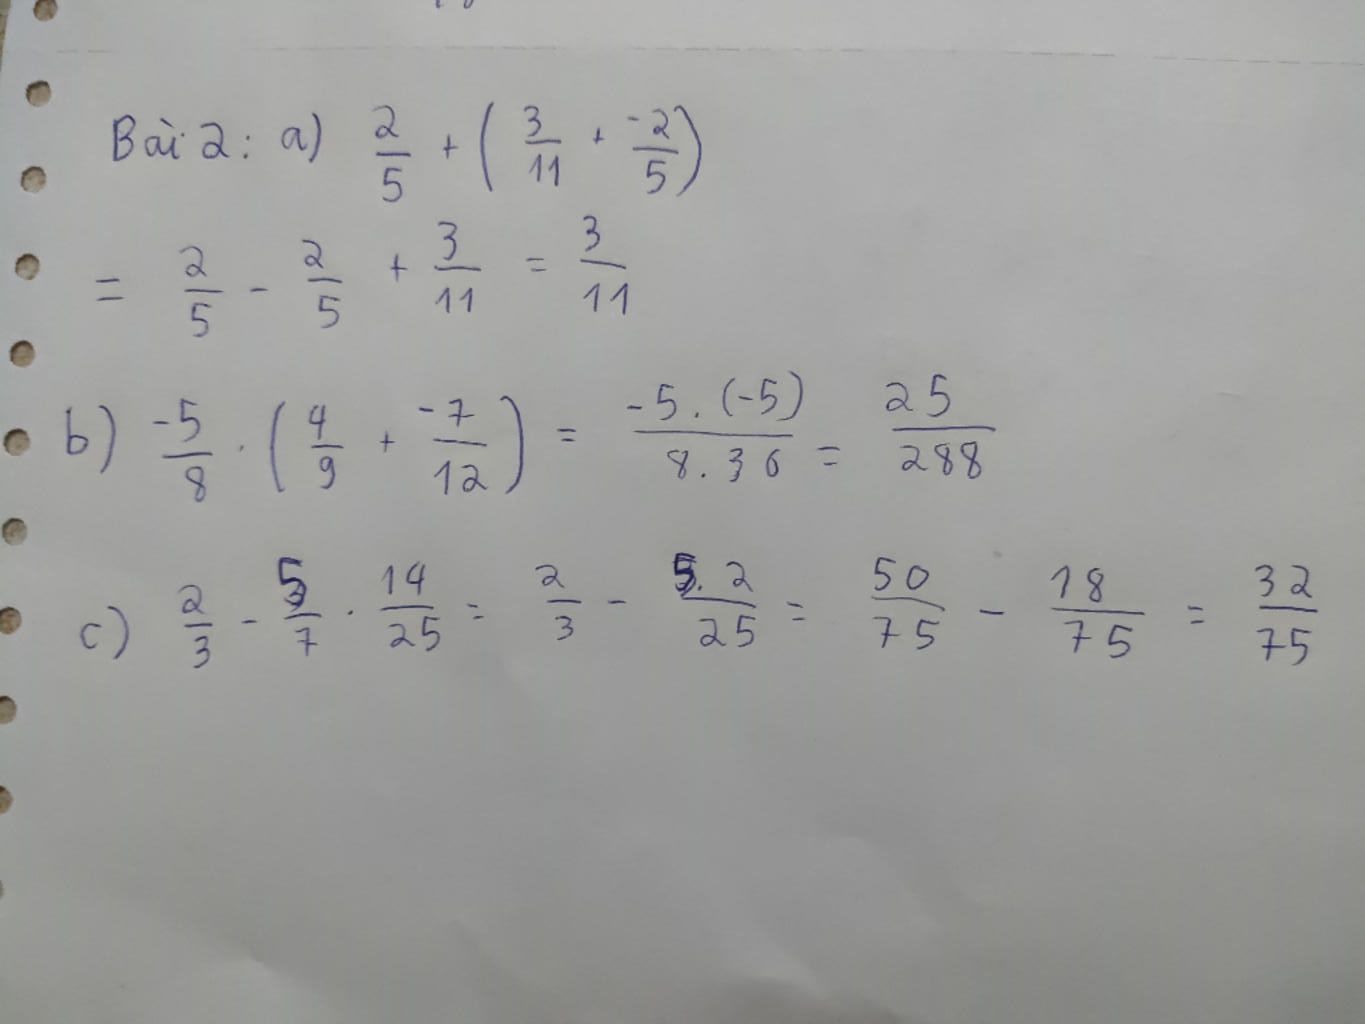 Bài 2: a) 2/5 + (3/11 + -2/5)
= 2/5 - 2/5 + 3/11 = 3/11
b) -5/8 . (4/9 + -7/12) = -5.(-5)/8.36 = 25/288
c) 2/3 - 5/7 . 14/25 = 2/3 - 5.2/25 = 50/75 - 18/75 = 32/75